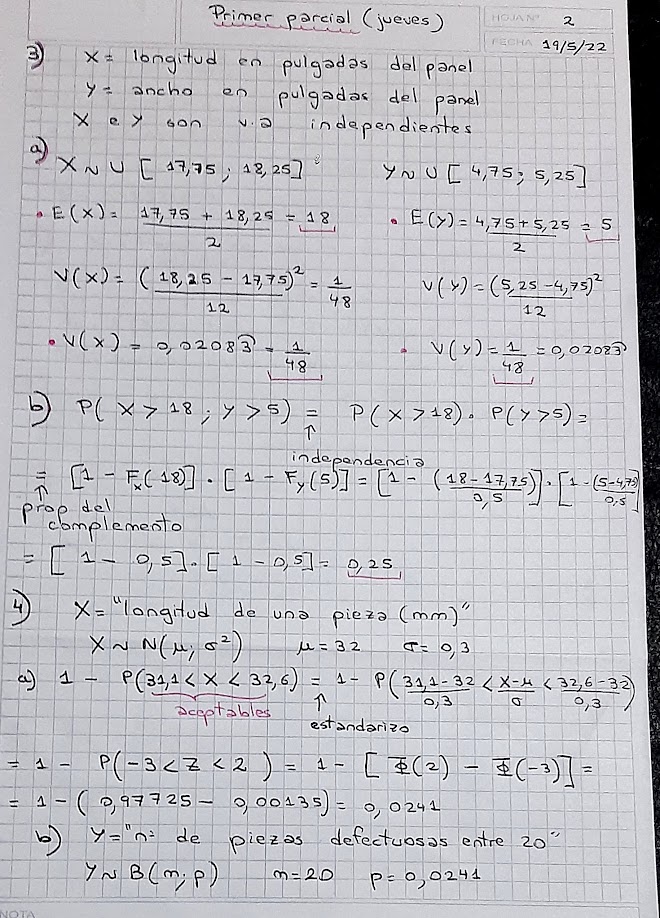 Primer parcial (jueves)
HOJA Nº 2
FECHA 19/5/22
3) X = longitud en pulgadas del panel
y = ancho en pulgadas del panel
X e y son v.a independientes
a) X ~ U [17,75 ; 18,25] y ~ U [4,75 ; 5,25]
• E(X) = (17,75 + 18,25)/2 = 18 • E(y) = (4,75 + 5,25)/2 = 5
V(X) = (18,25 - 17,75)²/12 = 1/48 V(y) = (5,25 - 4,75)²/12
• V(X) = 0,02083 = 1/48 • V(y) = 1/48 = 0,02083
b) P(X > 18 ; y > 5) = P(X > 18) . P(y > 5) =
↑
independencia
= [1 - Fx(18)] . [1 - Fy(5)] = [1 - (18 - 17,75)/0,5] . [1 - (5 - 4,75)/0,5]
↑
prop del
complemento
= [1 - 0,5] . [1 - 0,5] = 0,25
4) X = "longitud de una pieza (mm)"
X ~ N(μ; σ²) μ = 32 σ = 0,3
a) 1 - P(31,1 < X < 32,6) = 1 - P((31,1 - 32)/0,3 < (X - μ)/σ < (32,6 - 32)/0,3)
aceptables ↑
estandarizo
= 1 - P(-3 < Z < 2) = 1 - [Φ(2) - Φ(-3)] =
= 1 - (0,97725 - 0,00135) = 0,0241
b) y = "nº de piezas defectuosas entre 20"
y ~ B(n; p) n = 20 p = 0,0241
NOTA